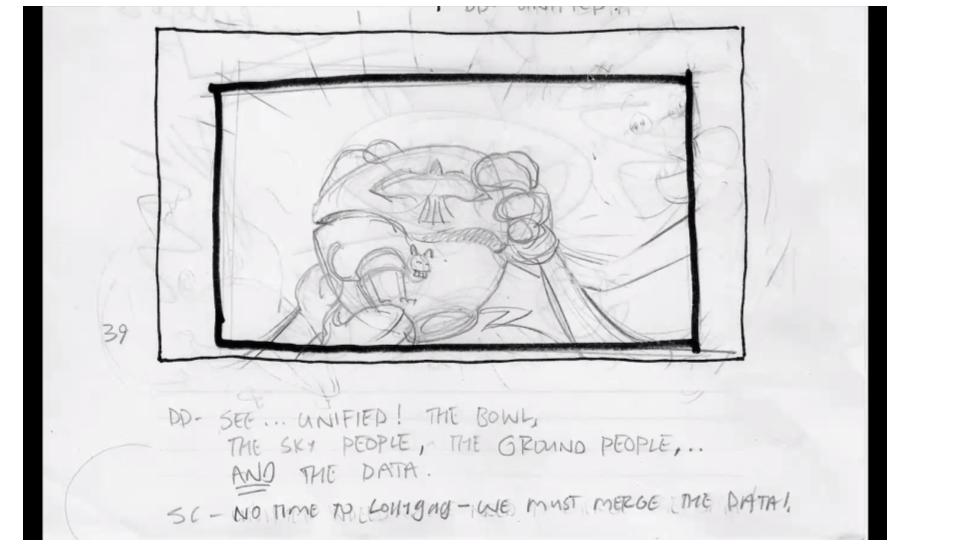 DD- UNIFIED!!
39
DD- SEE... UNIFIED! THE BOWL,
THE SKY PEOPLE, THE GROUND PEOPLE,..
AND THE DATA.
SC- NO TIME TO LOLLYGAG - WE MUST MERGE THE DATA!